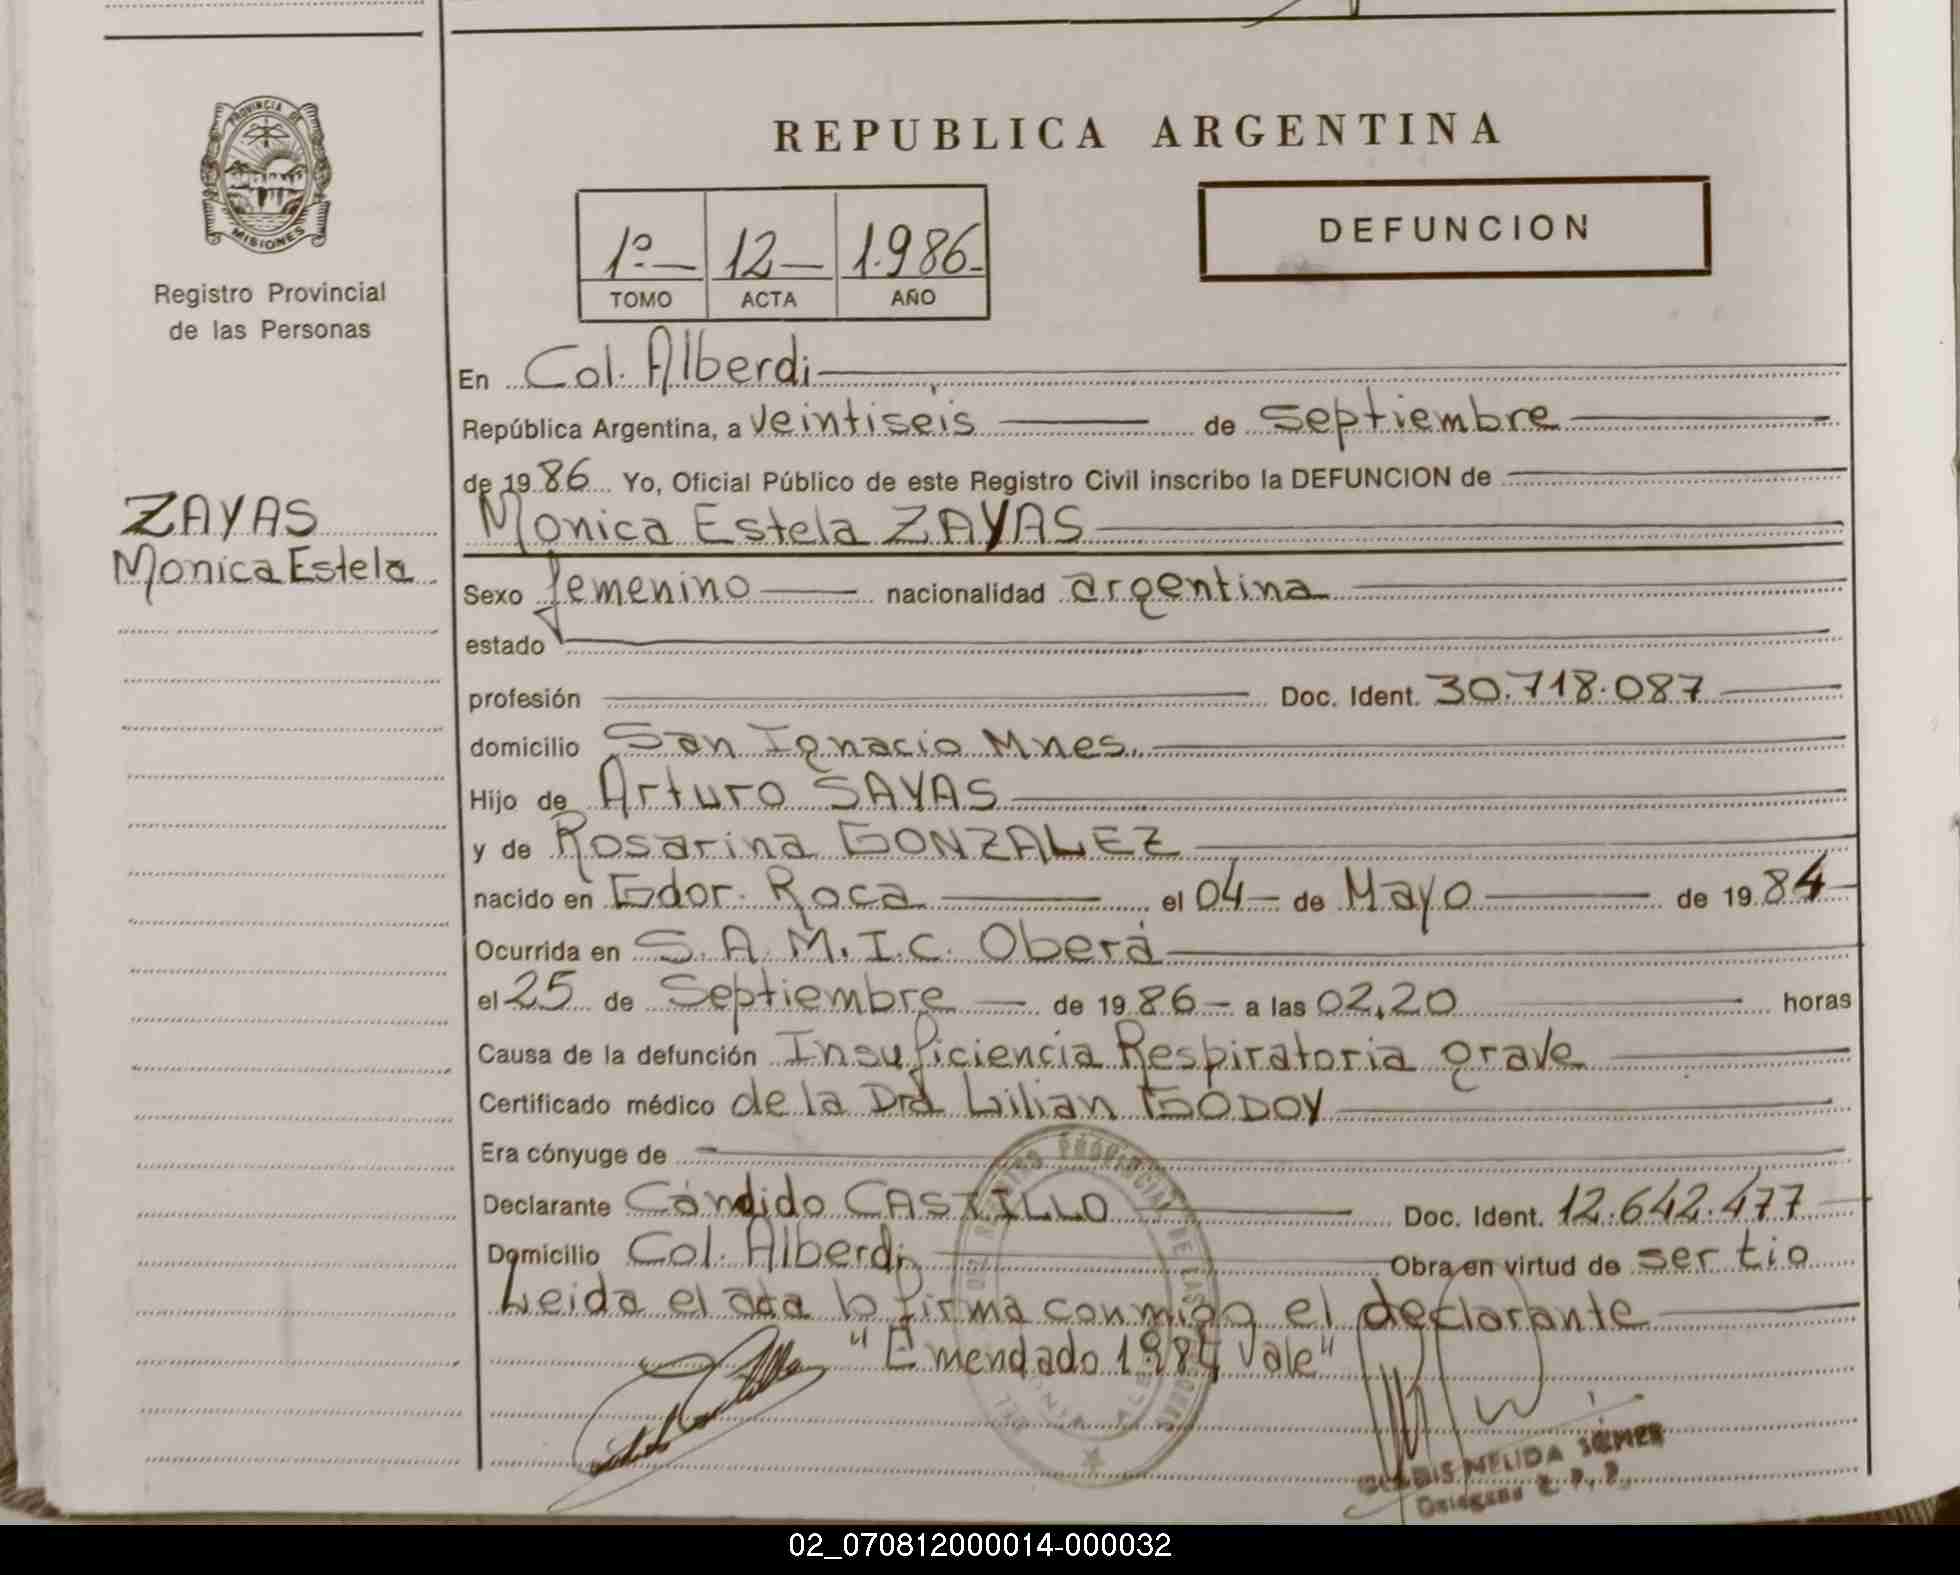 PROVINCIA DE MISIONES
Registro Provincial
de las Personas
ZAYAS
Monica Estela
REPUBLICA ARGENTINA
1º 12 1.986
TOMO ACTA AÑO
DEFUNCION
En Col. Alberdi
República Argentina, a veintiséis de septiembre
de 1986 Yo, Oficial Público de este Registro Civil inscribo la DEFUNCION de
Monica Estela ZAYAS
Sexo femenino nacionalidad argentina
estado
profesión Doc. Ident. 30.718.087
domicilio San Ignacio Mnes.
Hijo de Arturo SAYAS
y de Rosarina GONZALEZ
nacido en Gdor. Roca el 04 de Mayo de 1984
Ocurrida en S.A.M.I.C. Oberá
el 25 de Septiembre de 1986 a las 02,20 horas
Causa de la defunción Insuficiencia Respiratoria grave
Certificado médico de la Dra Lilian GODOY
Era cónyuge de
Declarante Cándido CASTILLO Doc. Ident. 12.642.477
Domicilio Col. Alberdi Obra en virtud de ser tio
Leida el acta lo firma conmigo el declarante
"Emendado 1984 Vale"
REGISTRO PROVINCIAL DE LAS PERSONAS
NELIDA
Delegada R.P.P.
02_070812000014-000032